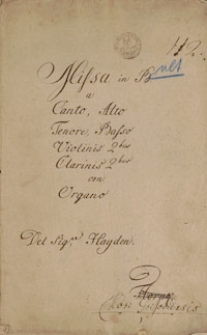 42.
Missa in B
a
Canto, Alto
Tenore, Basso
Violinis 2bus
Clarinis 2bus
con
Organo
Del Sigre Hayden.